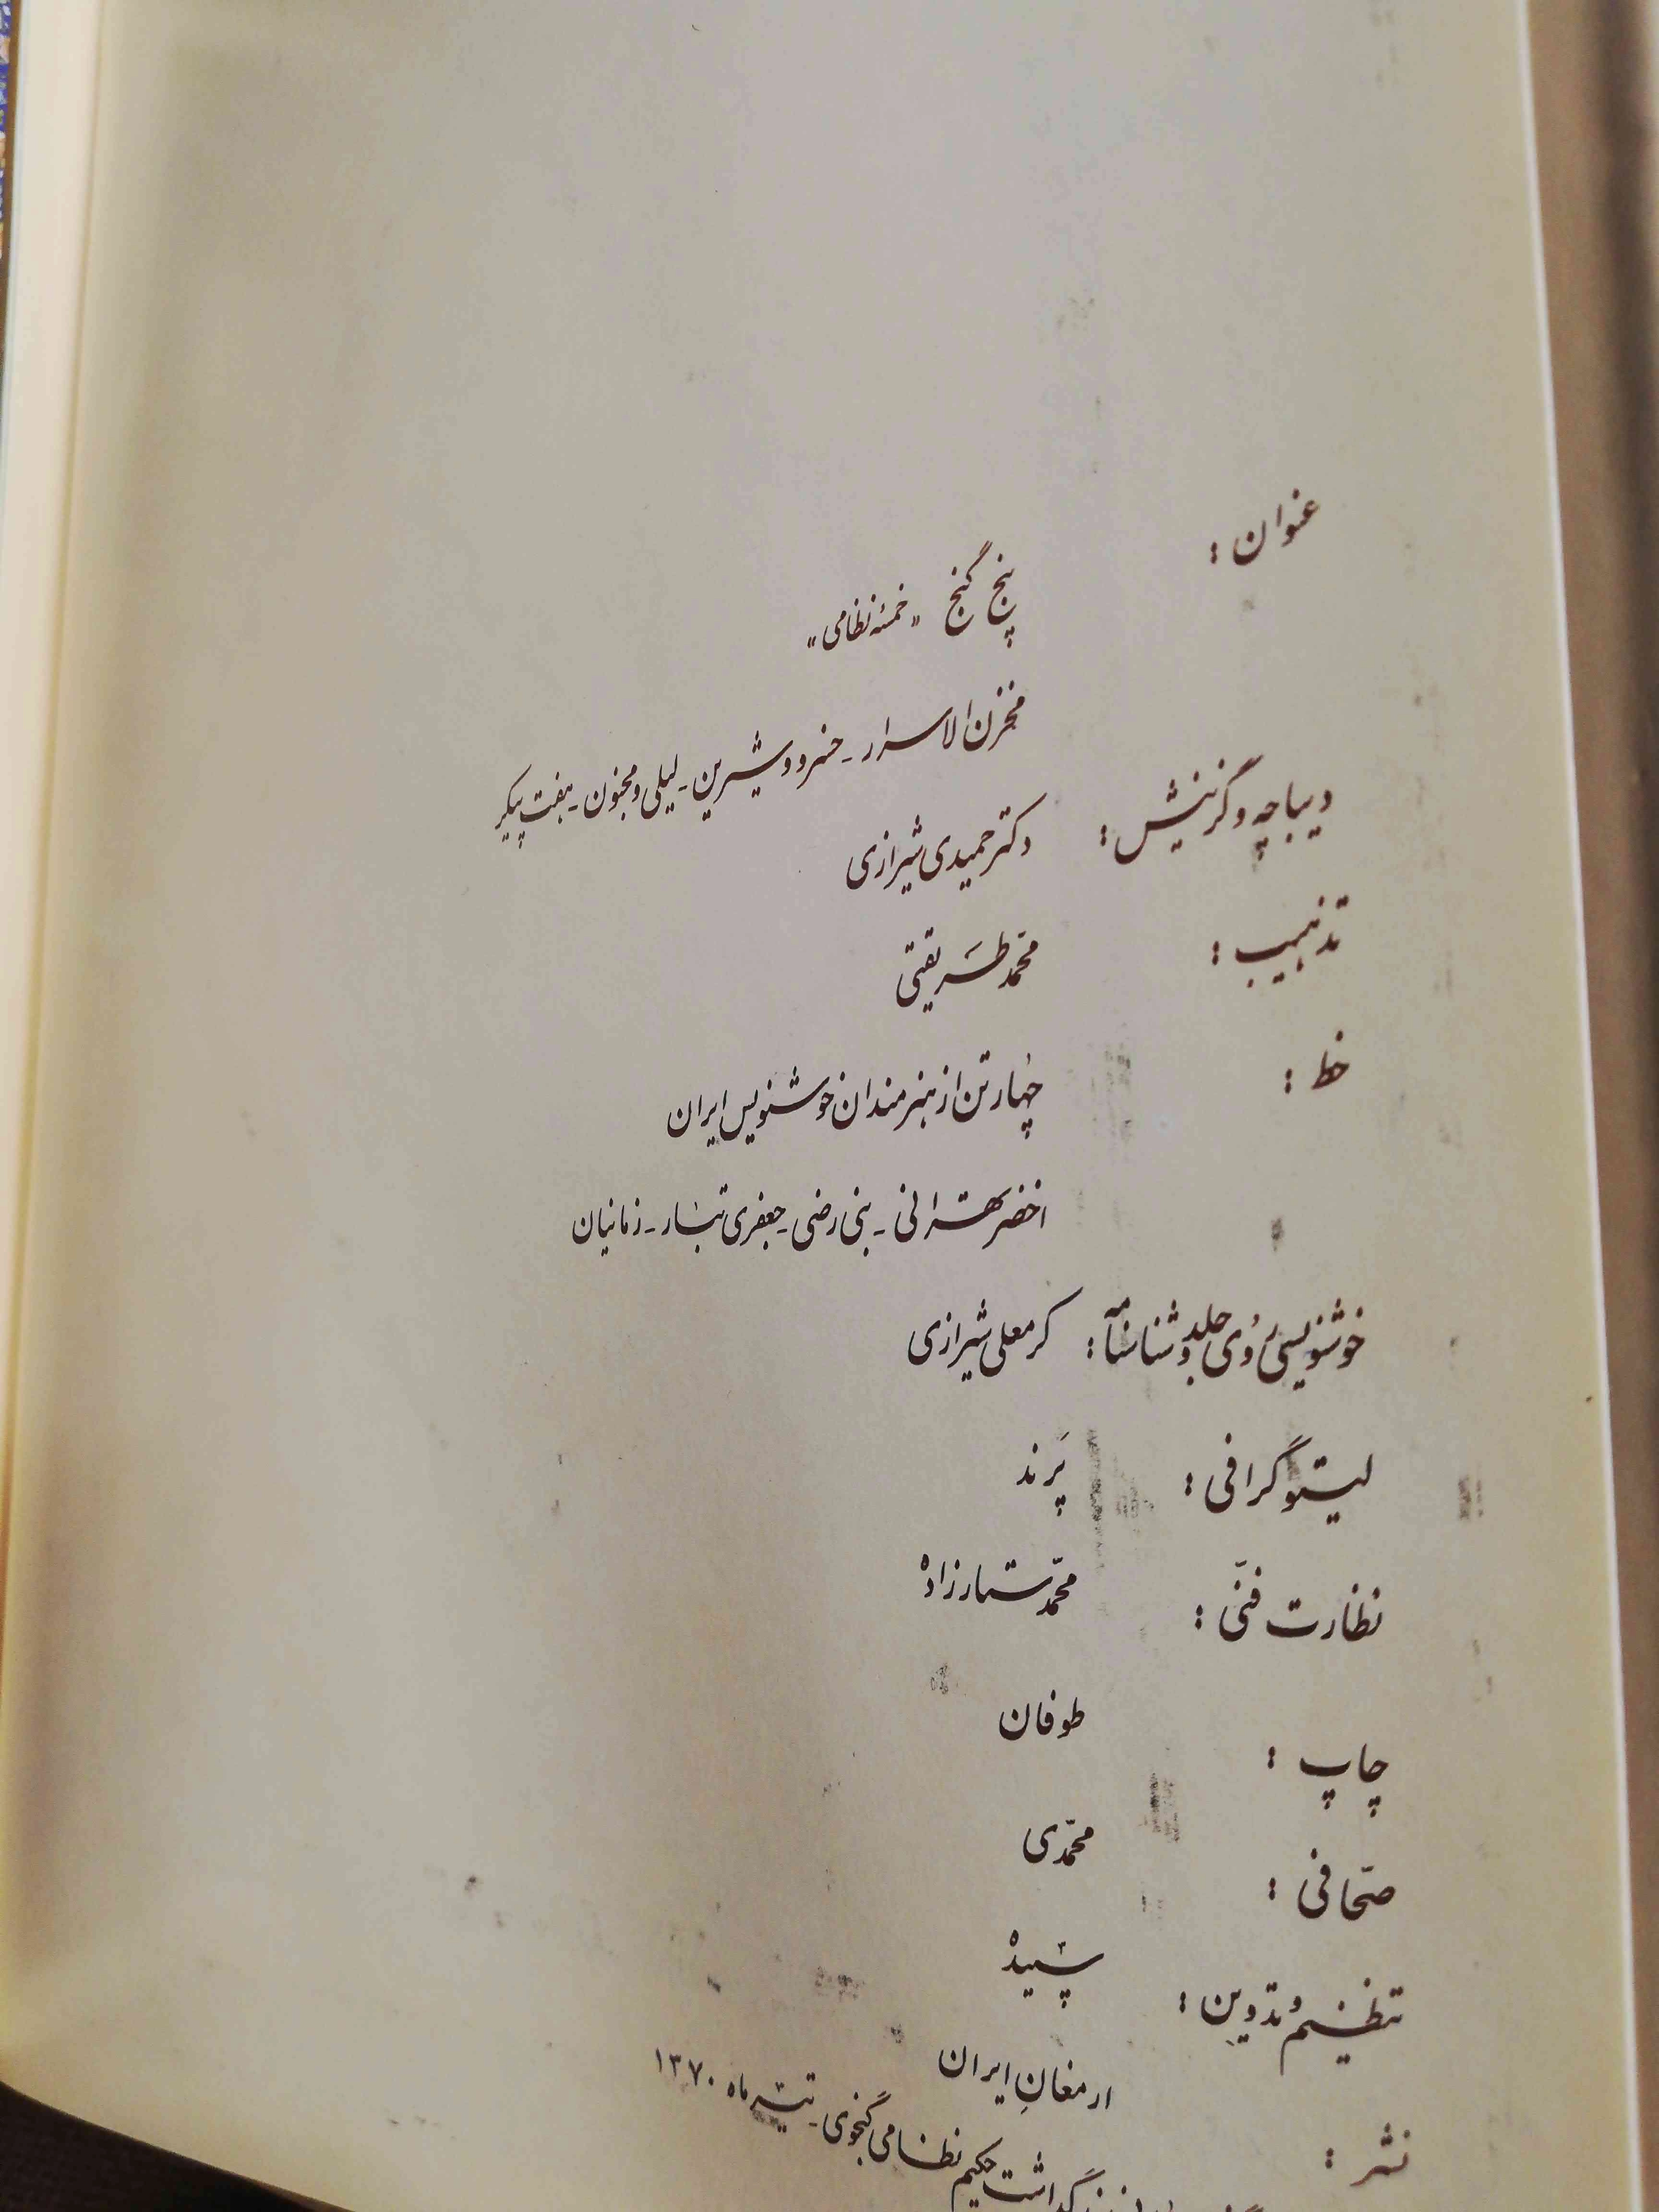 عنوان : پنج گنج "خمسه نظامی"
مخزن الاسرار - خسرو و شیرین - لیلی و مجنون - هفت پیکر
دیباچه و گزینش : دکتر حمیدی شیرازی
تذهیب : محمد طریقتی
خط : چهار تن از هنرمندان خوشنویس ایران
اخضر تهرانی - بنی رضی - جعفری تبار - زمانیان
خوشنویسی روی جلد و شناسنامه : کرمعلی شیرازی
لیتوگرافی : پرند
نظارت فنّی : محمّد شمارزاده
چاپ : طوفان
صحّافی : محمّدی
تنظیم و تدوین : سپیده
نشر : ارمغانِ ایران
گذاشت حکیم نظامی گنجوی - تیر ماه ۱۳۷۰